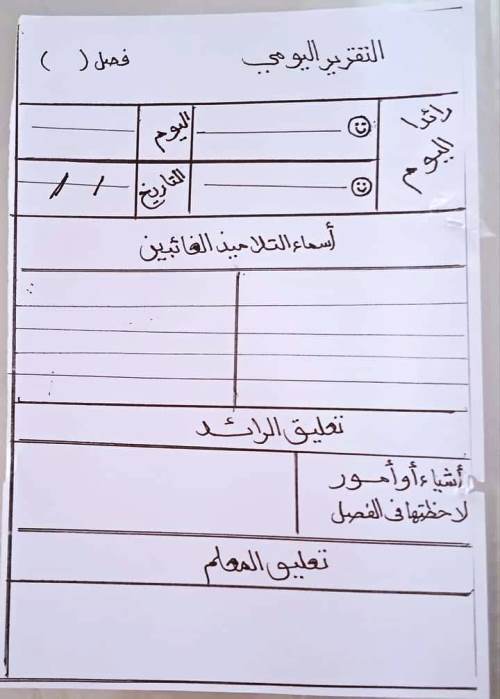 التقرير اليومي فصل ( )
رائدا اليوم
اليوم
التاريخ / /
أسماء التلاميذ الغائبين
تعليق الرائد
أشياء أو أمور
لاحظتها فى الفصل
تعليق المعلم